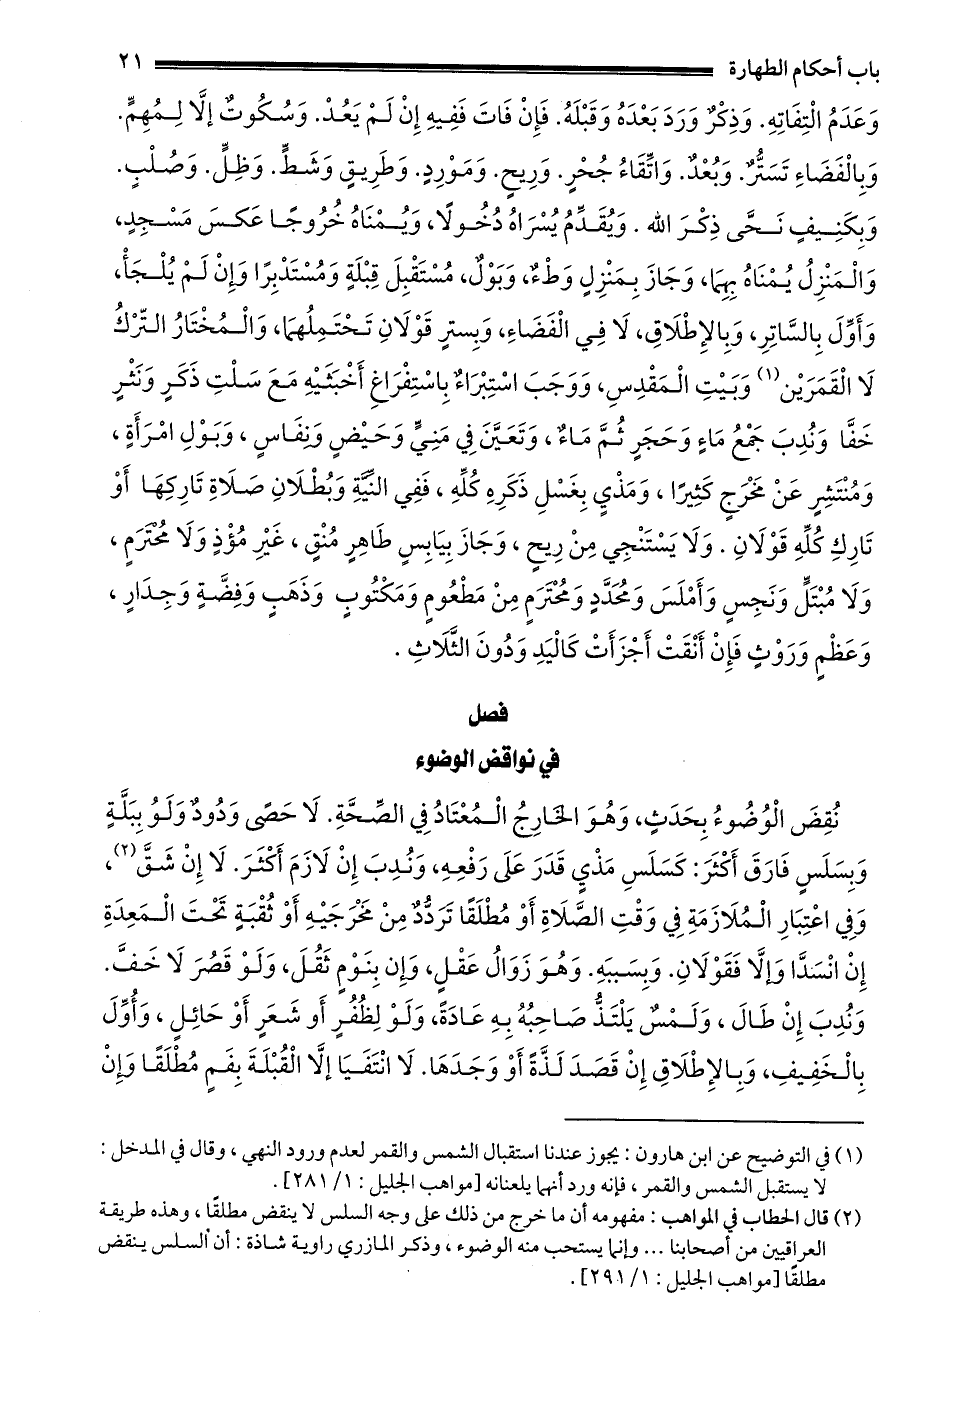 باب أحكام الطهارة ٢١
وَعَدَمُ الْتِفَاتِهِ. وَذِكْرٌ وَرَدَ بَعْدَهُ وَقَبْلَهُ. فَإِنْ فَاتَ فَفِيهِ إِنْ لَمْ يَعُدْ. وَسُكُوتٌ إلَّا لِمُهِمٍّ.
وَبِالْفَضَاءِ تَسَتُّرٌ. وَبُعْدٌ. وَاتِّقَاءُ جُحْرٍ. وَرِيحٍ. وَمَوْرِدٍ. وَطَرِيقٍ وَشَطٍّ. وَظِلٍّ. وَصُلْبٍ.
وَبِكَنِيفٍ نَحَّى ذِكْرَ الله . وَيُقَدِّمُ يُسْرَاهُ دُخُولًا، وَيُمْنَاهُ خُرُوجًا عَكسَ مَسْجِدٍ،
وَالْمَنْزِلُ يُمْنَاهُ بِهِمَا، وَجَازَ بِمَنْزِلٍ وَطْءٌ، وَبَوْلٌ، مُسْتَقْبِلَ قِبْلَةٍ وَمُسْتَدْبِرًا وَإِنْ لَمْ يُلْجَأْ،
وَأُوِّلَ بِالسَّاتِرِ، وَبِالإِطْلَاقِ، لَا فِي الْفَضَاءِ، وَبِسترٍ قَوْلَانِ تَحْتَمِلُهُمَا، وَالْمُخْتَارُ التّرْكُ
لَا الْقَمَرَيْن(١) وَبَيْتِ الْمَقْدِسِ، وَوَجَبَ اسْتِبْرَاءٌ بِاسْتِفْرَاغِ أَخْبَثَيْهِ مَعَ سَلْتِ ذَكَرٍ وَنَثْرٍ
خَفَّا وَنُدِبَ جَمْعُ مَاءٍ وَحَجَرٍ ثُمَّ مَاءٌ ، وَتَعَيَّنَ فِي مَنِيٍّ وَحَيْضٍ وَنِفَاسٍ ، وَبَوْلِ امْرَأَةٍ ،
وَمُنْتَشِرٍ عَنْ مَخْرَجٍ كَثِيرًا ، وَمَذْيٍ بِغَسْلِ ذَكَرِهِ كُلِّهِ ، فَفِي النِّيَّةِ وَبُطْلَانِ صَلَاةِ تَارِكِهَا أَوْ
تَارِكِ كُلِّهِ قَوْلَانِ . وَلَا يَسْتَنْجِي مِنْ رِيحٍ ، وَجَازَ بِيَابِسٍ طَاهِرٍ مُنْقٍ ، غَيْرِ مُؤْذٍ وَلَا مُحْتَرَمٍ ،
وَلَا مُبْتَلٍّ وَنَجِسٍ وَأَمْلَسَ وَمُحَدَّدٍ وَمُحْتَرَمٍ مِنْ مَطْعُومٍ وَمَكْتُوبٍ وَذَهَبٍ وَفِضَّةٍ وَجِدَارٍ ،
وَعَظْمٍ وَرَوْثٍ فَإِنْ أَنْقَتْ أَجْزَأَتْ كَالْيَدِ وَدُونَ الثَّلَاثِ .
فصل
في نواقض الوضوء
نُقِضَ الْوُضُوءُ بِحَدَثٍ، وَهُوَ الخَارِجُ الْمُعْتَادُ فِي الصِّحَّةِ. لَا حَصًى وَدُودٌ وَلَوْ بِبَلَّةٍ
وَبِسَلَسٍ فَارَقَ أَكْثَرَ: كَسَلَسِ مَذْيٍ قَدَرَ عَلَى رَفْعِهِ، وَنُدِبَ إِنْ لَازَمَ أَكْثَرَ. لَا إِنْ شَقَّ(٢)،
وَفِي اعْتِبَارِ الْمُلَازَمَةِ فِي وَقْتِ الصَّلَاةِ أَوْ مُطْلَقًا تَرَدُّدٌ مِنْ مَخْرَجَيْهِ أَوْ ثُقْبَةٍ تَحْتَ الْمَعِدَةِ
إِنْ انْسَدَّا وَإِلَّا فَقَوْلَانِ. وَبِسَبَبِهِ. وَهُوَ زَوَالُ عَقْلٍ، وَإِن بِنَوْمٍ ثَقُلَ، وَلَوْ قَصُرَ لَا خَفَّ.
وَنُدِبَ إِنْ طَالَ ، وَلَمْسٌ يَلْتَذُّ صَاحِبُهُ بِهِ عَادَةً، وَلَوْ لِظُفُرٍ أَو شَعَرٍ أَوْ حَائِلٍ ، وَأُوِّلَ
بِالْخَفِيفِ، وَبِالإِطْلَاقِ إِنْ قَصَدَ لَذَّةً أَوْ وَجَدَهَا. لَا انْتَفَيَا إلَّا الْقُبْلَةَ بِفَمٍ مُطْلَقًا وَإِنْ
(١) في التوضيح عن ابن هارون : يجوز عندنا استقبال الشمس والقمر لعدم ورود النهي ، وقال في المدخل :
لا يستقبل الشمس والقمر ، فإنه ورد أنهما يلعنانه [مواهب الجليل : ١/ ٢٨١] .
(٢) قال الحطاب في المواهب : مفهومه أن ما خرج من ذلك على وجه السلس لا ينقض مطلقًا ، وهذه طريقة
العراقيين من أصحابنا ... وإنما يستحب منه الوضوء ، وذكر المازري راوية شاذة : أن السلس ينقض
مطلقًا [مواهب الجليل : ١/ ٢٩١] .